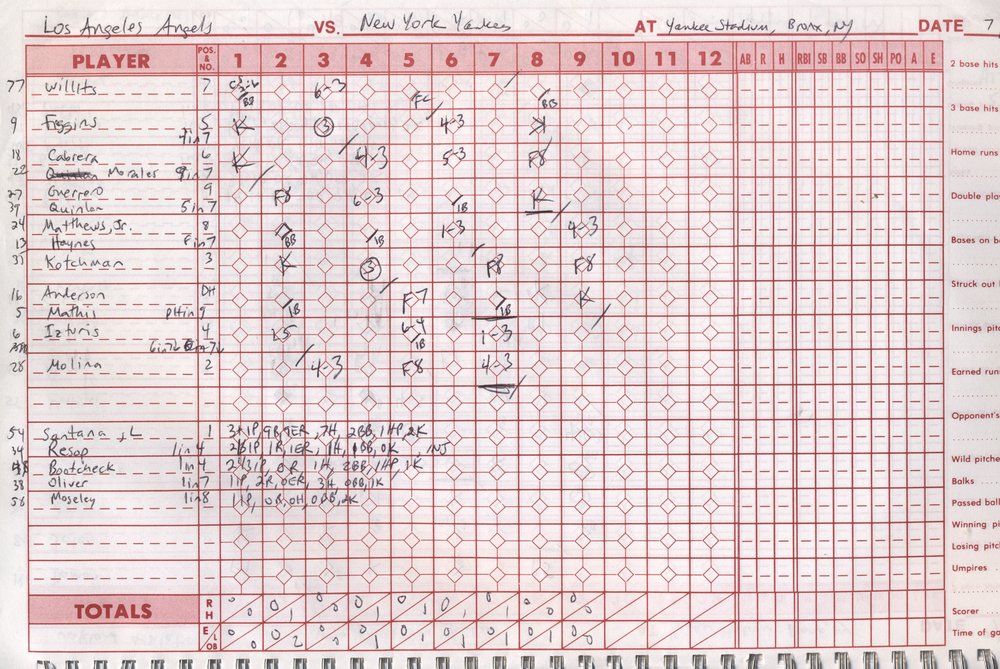 Los Angeles Angels VS. New York Yankees AT Yankee Stadium, Bronx, NY DATE 7
PLAYER POS. & NO. 1 2 3 4 5 6 7 8 9 10 11 12 AB R H RBI SB BB SO SH PO A E
2 base hits
77 Willits 7 BB 6-3 FC BB
3 base hits
9 Figgins 5 K 3 4-3 K
7in7
Home runs
18 Cabrera 6 K 4-3 5-3 F8
22 Morales 9in7
27 Guerrero 9 F8 6-3 1B K
Double pla
39 Quinlan 5in7
24 Matthews, Jr. 8 BB 1B 1-3 4-3
13 Haynes in7
Bases on b
31 Kotchman 3 K 3 F8 F8
Struck out
16 Anderson DH 1B F7 1B K
5 Mathis PHin9
6 Izturis 4 6-4 1B 1-3
Innings pitc
28 Molina 2 4-3 F8 4-3
Earned run
Opponent's
54 Santana, L 1 3+IP, 9R, 9ER, 7H, 2BB, 1HP, 2K
34 Resop 1in4 2/3IP, 1R, 1ER, 1H, 1BB, 0K, INJ
Bootcheck 1in4 2 1/3IP, 0R, 1H, 2BB, 1HP, 1K
Wild pitche
38 Oliver 1in7 1IP, 2R, 0ER, 3H, 0BB, 1K
Balks
56 Moseley 1in8 1IP, 0R, 0H, 0BB, 2K
Passed ball
Winning pi
Losing pitc
Umpires
TOTALS R H 0 0 0 1 0 0 0 1 0 1 0 1 0 1 0 0 0 0
Scorer
E LOB 0 0 0 2 0 0 0 1 0 1 0 1 0 1 0 1 0 0
Time of ga